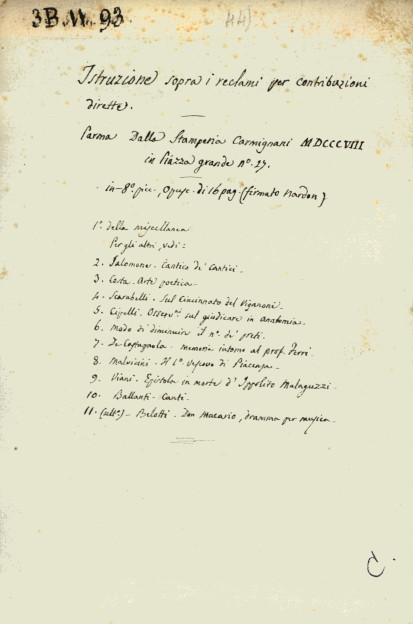 3 B. M. 93
44)
Istruzione sopra i reclami per contribuzioni
dirette.
Parma Dalla Stamperia Carmignani MDCCCVIII
in Piazza grande nº. 27.
in-8º. picc., Opusc. di 16 pag. (firmato Nardon)
1º. della miscellanea
Per gli altri, vedi:
2. Salomone. Cantico de' Cantici.
3. Costa. Arte poetica.
4. Scarabelli. Sul Cincinnato del Viganoni.
5. Cipelli. Osservⁿⁱ. sul giudicare in Anatomia.
6. Modo di diminuire il nº. de' preti.
7. De Castagnola. memorie intorno al prof. Ferri.
8. Malvicini. Il 1º. Vescovo di Piacenza.
9. Viani. Epistola in morte d' Ippolito Malaguzzi.
10. Ballanti. Canti.
11. (ult.º) - Belotti. Don Macario, dramma per musica.
C.